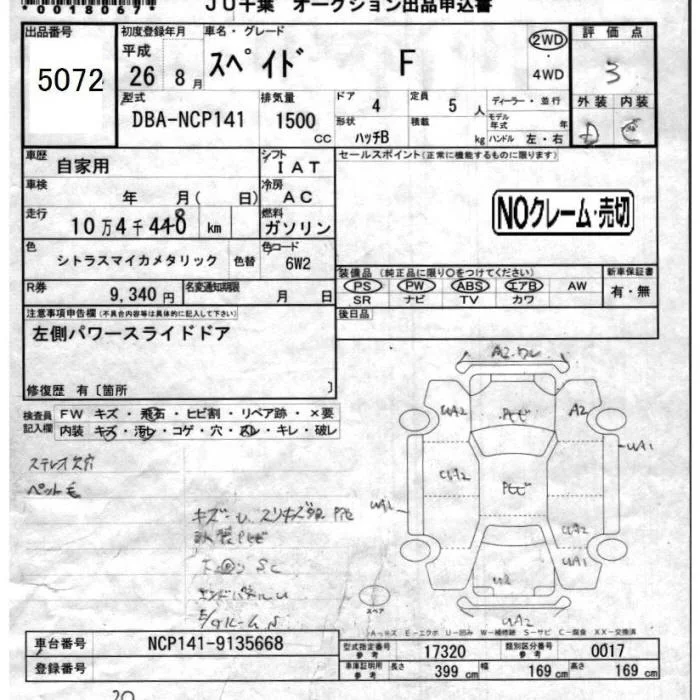 0018067
JU千葉 オークション出品申込書
出品番号
5072
初度登録年月
平成
26 8月
車名・グレード
スペイド F
2WD
・
4WD
評価点
3
外装 内装
D C
型式
DBA-NCP141
排気量
1500
CC
ドア
4
定員
5 人
形状
ハッチB
積載
kg
ディーラー・並行
モデル年式 年
ハンドル 左・右
車歴
自家用
シフト
I AT
車検
年 月( 日)
冷房
AC
走行
10万4千 km
燃料
ガソリン
色
シトラスマイカメタリック 色替
色コード
6W2
R券
9,340円
名変通知期限
月 日
セールスポイント(正常に機能するものに限ります)
NOクレーム・売切
装備品 (純正品に限り○をつけてください)
PS PW ABS エアB AW
SR ナビ TV カワ
新車保証書
有・無
後日品
注意事項申告欄(不具合内容等は具体的に記入して下さい)
左側パワースライドドア
修復歴 有〔箇所 〕
検査員記入欄
FW キズ・飛石・ヒビ割・リペア跡・×要
内装 キズ・汚レ・コゲ・穴・スレ・キレ・破レ
ステレオ欠穴
ペット毛
A2
UA2
A2
UA1
UA2
UA1
UA2
スペア
A-キズ E-エクボ U-凹み W-補修跡 S-サビ C-腐食 XX-交換済
車台番号
NCP141-9135668
登録番号
型式指定番号
参考
17320
類別区分番号
参考
0017
車庫証明用
参考
長さ 399 cm 幅 169 cm 高さ 169 cm
20